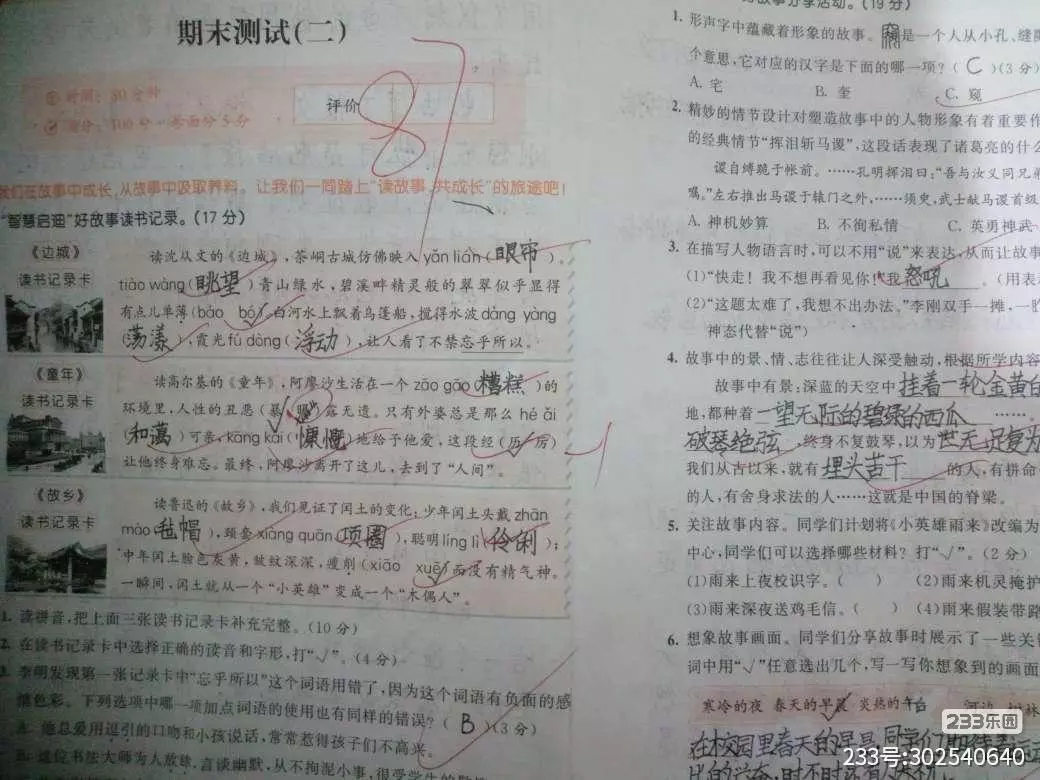 期末测试(二)
时间：90分钟
满分：100分+卷面分5分
评价
87
我们在故事中成长,从故事中吸取养料。让我们一同踏上"读故事,共成长"的旅途吧！
"智慧启迪"好故事读书记录。(17分)
《边城》
读书记录卡
读沈从文的《边城》,茶峒古城仿佛映入 yǎn lián(眼帘)。
tiào wàng(眺望)青山绿水,碧溪畔精灵般的翠翠似乎显得
有点儿单薄(báo bó),白河水上飘着乌篷船,搅得水波 dàng yàng
(荡漾),霞光 fú dòng(浮动),让人看了不禁忘乎所以。
《童年》
读书记录卡
读高尔基的《童年》,阿廖沙生活在一个 zāo gāo(糟糕)的
环境里,人性的丑恶(暴)露无遗。只有外婆总是那么 hé ǎi
(和蔼)可亲,kāng kǎi(慷慨)地给予他爱,这段经(历 厉)
让他终身难忘。最终,阿廖沙离开了这儿,去到了"人间"。
《故乡》
读书记录卡
读鲁迅的《故乡》,我们见证了闰土的变化:少年闰土头戴 zhān
mào(毡帽),颈套 xiàng quān(项圈),聪明 líng lì(伶俐);
中年闰土脸色灰黄,皱纹深深,瘦削(xiāo xuē)而没有精气神。
一瞬间,闰土就从一个"小英雄"变成一个"木偶人"。
1. 读拼音,把上面三张读书记录卡补充完整。(10分)
2. 在读书记录卡中选择正确的读音和字形,打"√"。(4分)
3. 李明发现第一张记录卡中"忘乎所以"这个词语用错了,因为这个词语有负面的感
情色彩。下列选项中哪一项加点词语的使用也有同样的错误？(B)(3分)
A. 他总爱用逗引的口吻和小孩说话,常常惹得孩子们不高兴。
B. 这位书法大师为人放肆,言谈幽默,从不拘泥小事,很受学生的
好故事分享活动。(19分)
1. 形声字中蕴藏着形象的故事。是一个人从小孔、缝隙
个意思,它对应的汉字是下面的哪一项？(C)(3分)
A. 宅 B. 奎 C. 窥
2. 精妙的情节设计对塑造故事中的人物形象有着重要作
的经典情节"挥泪斩马谡",这段话表现了诸葛亮的什么
谡自缚跪于帐前。……孔明挥泪曰:"吾与汝义同兄弟
嘱。"左右推出马谡于辕门之外,……须臾,武士献马谡首级
A. 神机妙算 B. 不徇私情 C. 英勇神武
3. 在描写人物语言时,可以不用"说"来表达,从而让故事
(1)"快走！我不想再看见你！"我怒吼。(用表
(2)"这题太难了,我想不出办法。"李刚双手一摊,一
神态代替"说")
4. 故事中的景、情、志往往让人深受触动,根据所学内容
故事中有景:深蓝的天空中挂着一轮金黄的
地,都种着一望无际的碧绿的西瓜……
破琴绝弦,终身不复鼓琴,以为世无足复为
我们从古以来,就有埋头苦干的人,有拼命
的人,有舍身求法的人……这就是中国的脊梁。
5. 关注故事内容。同学们计划将《小英雄雨来》改编为
中心,同学们可以选择哪些材料？打"√"。(2分)
(1)雨来上夜校识字。( ) (2)雨来机灵掩护
(3)雨来深夜送鸡毛信。( ) (4)雨来假装带路
6. 想象故事画面。同学们分享故事时展示了一些关键
词中用"√"任意选出几个,写一写你想象到的画面
寒冷的夜 春天的早晨 炎热的午后 河边
在校园里春天的早晨,同学们
233乐园
233号:302540640